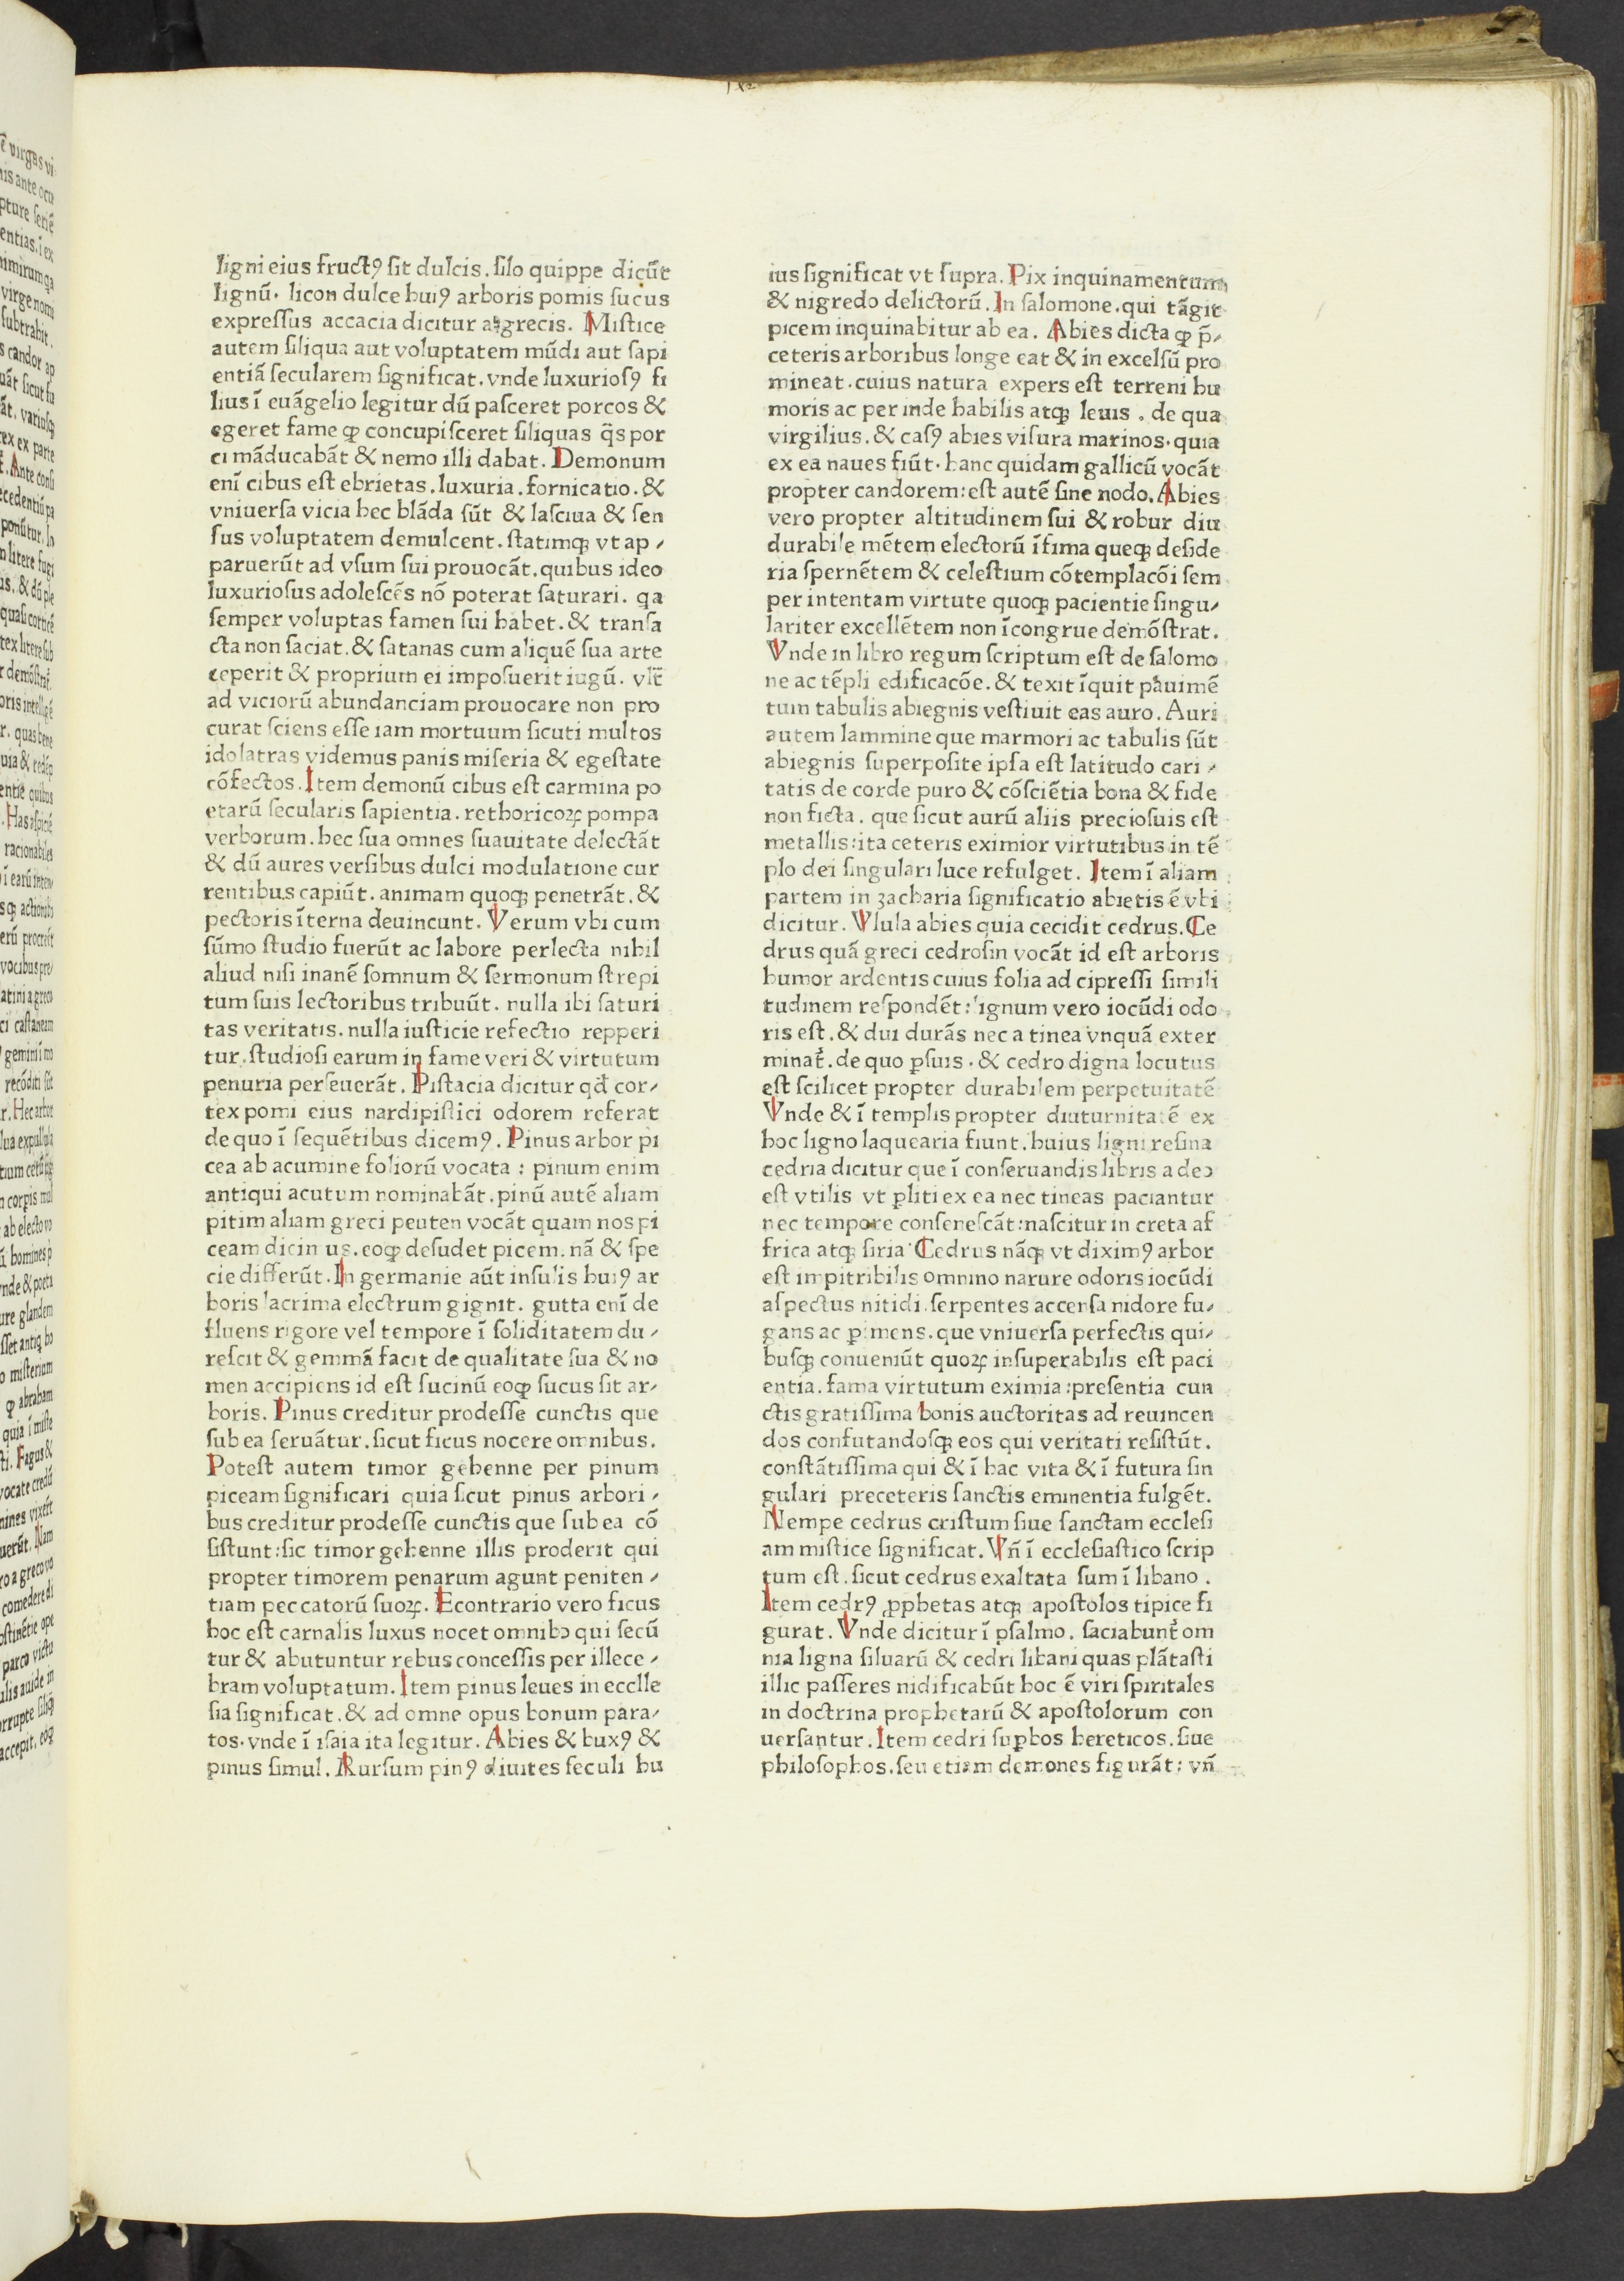 ligni eius fructꝯ ſit dulcis. ſilo quippe dicūt
lignū. licon dulce huiꝯ arboris pomis ſucus
expreſſus accacia dicitur a grecis. Miſtice
autem ſiliqua aut voluptatem mūdi aut ſapi
entiā ſecularem ſignificat. vnde luxurioſꝯ fi
lius ī euāgelio legitur dū paſceret porcos &
egeret fame ꝙ concupiſceret ſiliquas q̄s por
ci māducabāt & nemo illi dabat. Demonum
enī cibus eſt ebrietas. luxuria. fornicatio. &
vniuerſa vicia hec blāda ſūt & laſciua & ſen
ſus voluptatem demulcent. ſtatimqꝫ vt ap⸗
paruerūt ad vſum ſui prouocāt. quibus ideo
luxurioſus adoleſcēs nō poterat ſaturari. qa
ſemper voluptas famen ſui habet. & tranſa
cta non ſaciat. & ſatanas cum aliquē ſua arte
ceperit & proprium ei impoſuerit iugū. vlt̄
ad viciorū abundanciam prouocare non pro
curat ſciens eſſe iam mortuum ſicuti multos
idolatras videmus panis miſeria & egeſtate
cōfectos. Item demonū cibus eſt carmina po
etarū ſecularis ſapientia. rethoricoꝝ pompa
verborum. hec ſua omnes ſuauitate delectāt
& dū aures verſibus dulci modulatione cur
rentibus capiūt. animam quoqꝫ penetrāt. &
pectoris īterna deuincunt. Verum vbi cum
ſūmo ſtudio fuerūt ac labore perlecta nihil
aliud niſi inanē ſomnum & ſermonum ſtrepi
tum ſuis lectoribus tribuūt. nulla ibi ſaturi
tas veritatis. nulla iuſticie refectio repperi
tur. ſtudioſi earum in fame veri & virtutum
penuria perſeuerāt. Piſtacia dicitur qđ cor⸗
tex pomi eius nardipiſtici odorem referat
de quo ī ſequētibus dicemꝯ. Pinus arbor pi
cea ab acumine foliorū vocata : pinum enim
antiqui acutum nominabāt. pinū autē aliam
pitim aliam greci peuten vocāt quam nos pi
ceam dicin us. eoꝙ deſudet picem. nā & ſpe
cie differūt. In germanie aūt inſulis huiꝯ ar
boris lacrima electrum gignit. gutta enī de
fluens rigore vel tempore ī ſoliditatem du⸗
reſcit & gemmā facit de qualitate ſua & no
men accipiens id eſt ſucinū eoꝙ ſucus ſit ar⸗
boris. Pinus creditur prodeſſe cunctis que
ſub ea ſeruātur. ſicut ficus nocere omnibus.
Poteſt autem timor gehenne per pinum
piceam ſignificari quia ſicut pinus arbori⸗
bus creditur prodeſſe cunctis que ſub ea cō
ſiſtunt: ſic timor gehenne illis proderit qui
propter timorem penarum agunt peniten⸗
tiam peccatorū ſuoꝝ. Econtrario vero ficus
hoc eſt carnalis luxus nocet omnibꝰ qui ſecū
tur & abutuntur rebus conceſſis per illece⸗
bram voluptatum. Item pinus leues in ecclle
ſia ſignificat. & ad omne opus bonum para⸗
tos. vnde ī iſaia ita legitur. Abies & buxꝯ &
pinus ſimul. Rurſum pinꝯ diuites ſeculi hu
ius ſignificat vt ſupra. Pix inquinamentum
& nigredo delictorū. In ſalomone. qui tāgit
picem inquinabitur ab ea. Abies dicta ꝙ p̄⸗
ceteris arboribus longe eat & in excelſū pro
mineat. cuius natura expers eſt terreni hu
moris ac per inde habilis atqꝫ leuis. de qua
virgilius. & caſꝯ abies viſura marinos. quia
ex ea naues fiūt. hanc quidam gallicū vocāt
propter candorem: eſt autē ſine nodo. Abies
vero propter altitudinem ſui & robur diu
durabile mētem electorū īfima queqꝫ deſide
ria ſpernētem & celeſtium cōtemplacōi ſem
per intentam virtute quoqꝫ pacientie ſingu⸗
lariter excellētem non īcongrue demōſtrat.
Vnde in libro regum ſcriptum eſt de ſalomo
ne ac tēpli edificacōe. & texit īquit pauimē
tum tabulis abiegnis veſtiuit eas auro. Auri
autem lammine que marmori ac tabulis ſūt
abiegnis ſuperpoſite ipſa eſt latitudo cari⸗
tatis de corde puro & cōſciētia bona & fide
non ficta. que ſicut aurū aliis precioſuis eſt
metallis: ita ceteris eximior virtutibus in tē
plo dei ſingulari luce refulget. Item ī aliam
partem in zacharia ſignificatio abietis ē vbi
dicitur. Vlula abies quia cecidit cedrus. Ce
drus quā greci cedroſin vocāt id eſt arboris
humor ardentis cuius folia ad cipreſſi ſimili
tudinem reſpondēt: lignum vero iocūdi odo
ris eſt. & dui durās nec a tinea vnquā exter
minat᷑. de quo ꝑſuis. & cedro digna locutus
eſt ſcilicet propter durabilem perpetuitatē
Vnde & ī templis propter diuturnitatē ex
hoc ligno laquearia fiunt. huius ligni reſina
cedria dicitur que ī conſeruandis libris adeo
eſt vtilis vt ꝑliti ex ea nec tineas paciantur
nec tempore conſeneſcāt: naſcitur in creta af
frica atqꝫ ſiria. Cedrus nāqꝫ vt diximꝯ arbor
eſt impitribilis omnino narure odoris iocūdi
aſpectus nitidi. ſerpentes accenſa nidore fu⸗
gans ac ꝑimens. que vniuerſa perfectis qui⸗
buſqꝫ conueniūt quoꝝ inſuperabilis eſt paci
entia. fama virtutum eximia: preſentia cun
ctis gratiſſima bonis auctoritas ad reuincen
dos confutandoſqꝫ eos qui veritati reſiſtūt.
conſtātiſſima qui & ī hac vita & ī futura ſin
gulari preceteris ſanctis eminentia fulgēt.
Nempe cedrus criſtum ſiue ſanctam eccleſi
am miſtice ſignificat. Vn̄ ī eccleſiaſtico ſcrip
tum eſt. ſicut cedrus exaltata ſum ī libano.
Item cedrꝯ ꝓphetas atqꝫ apoſtolos tipice fi
gurat. Vnde dicitur ī pſalmo. ſaciabunt᷑ om
nia ligna ſiluarū & cedri libani quas plātaſti
illic paſſeres nidificabūt hoc ē viri ſpiritales
in doctrina prophetarū & apoſtolorum con
uerſantur. Item cedri ſuꝑbos hereticos. ſiue
philoſophos. ſeu etiam demones figurāt: vn̄